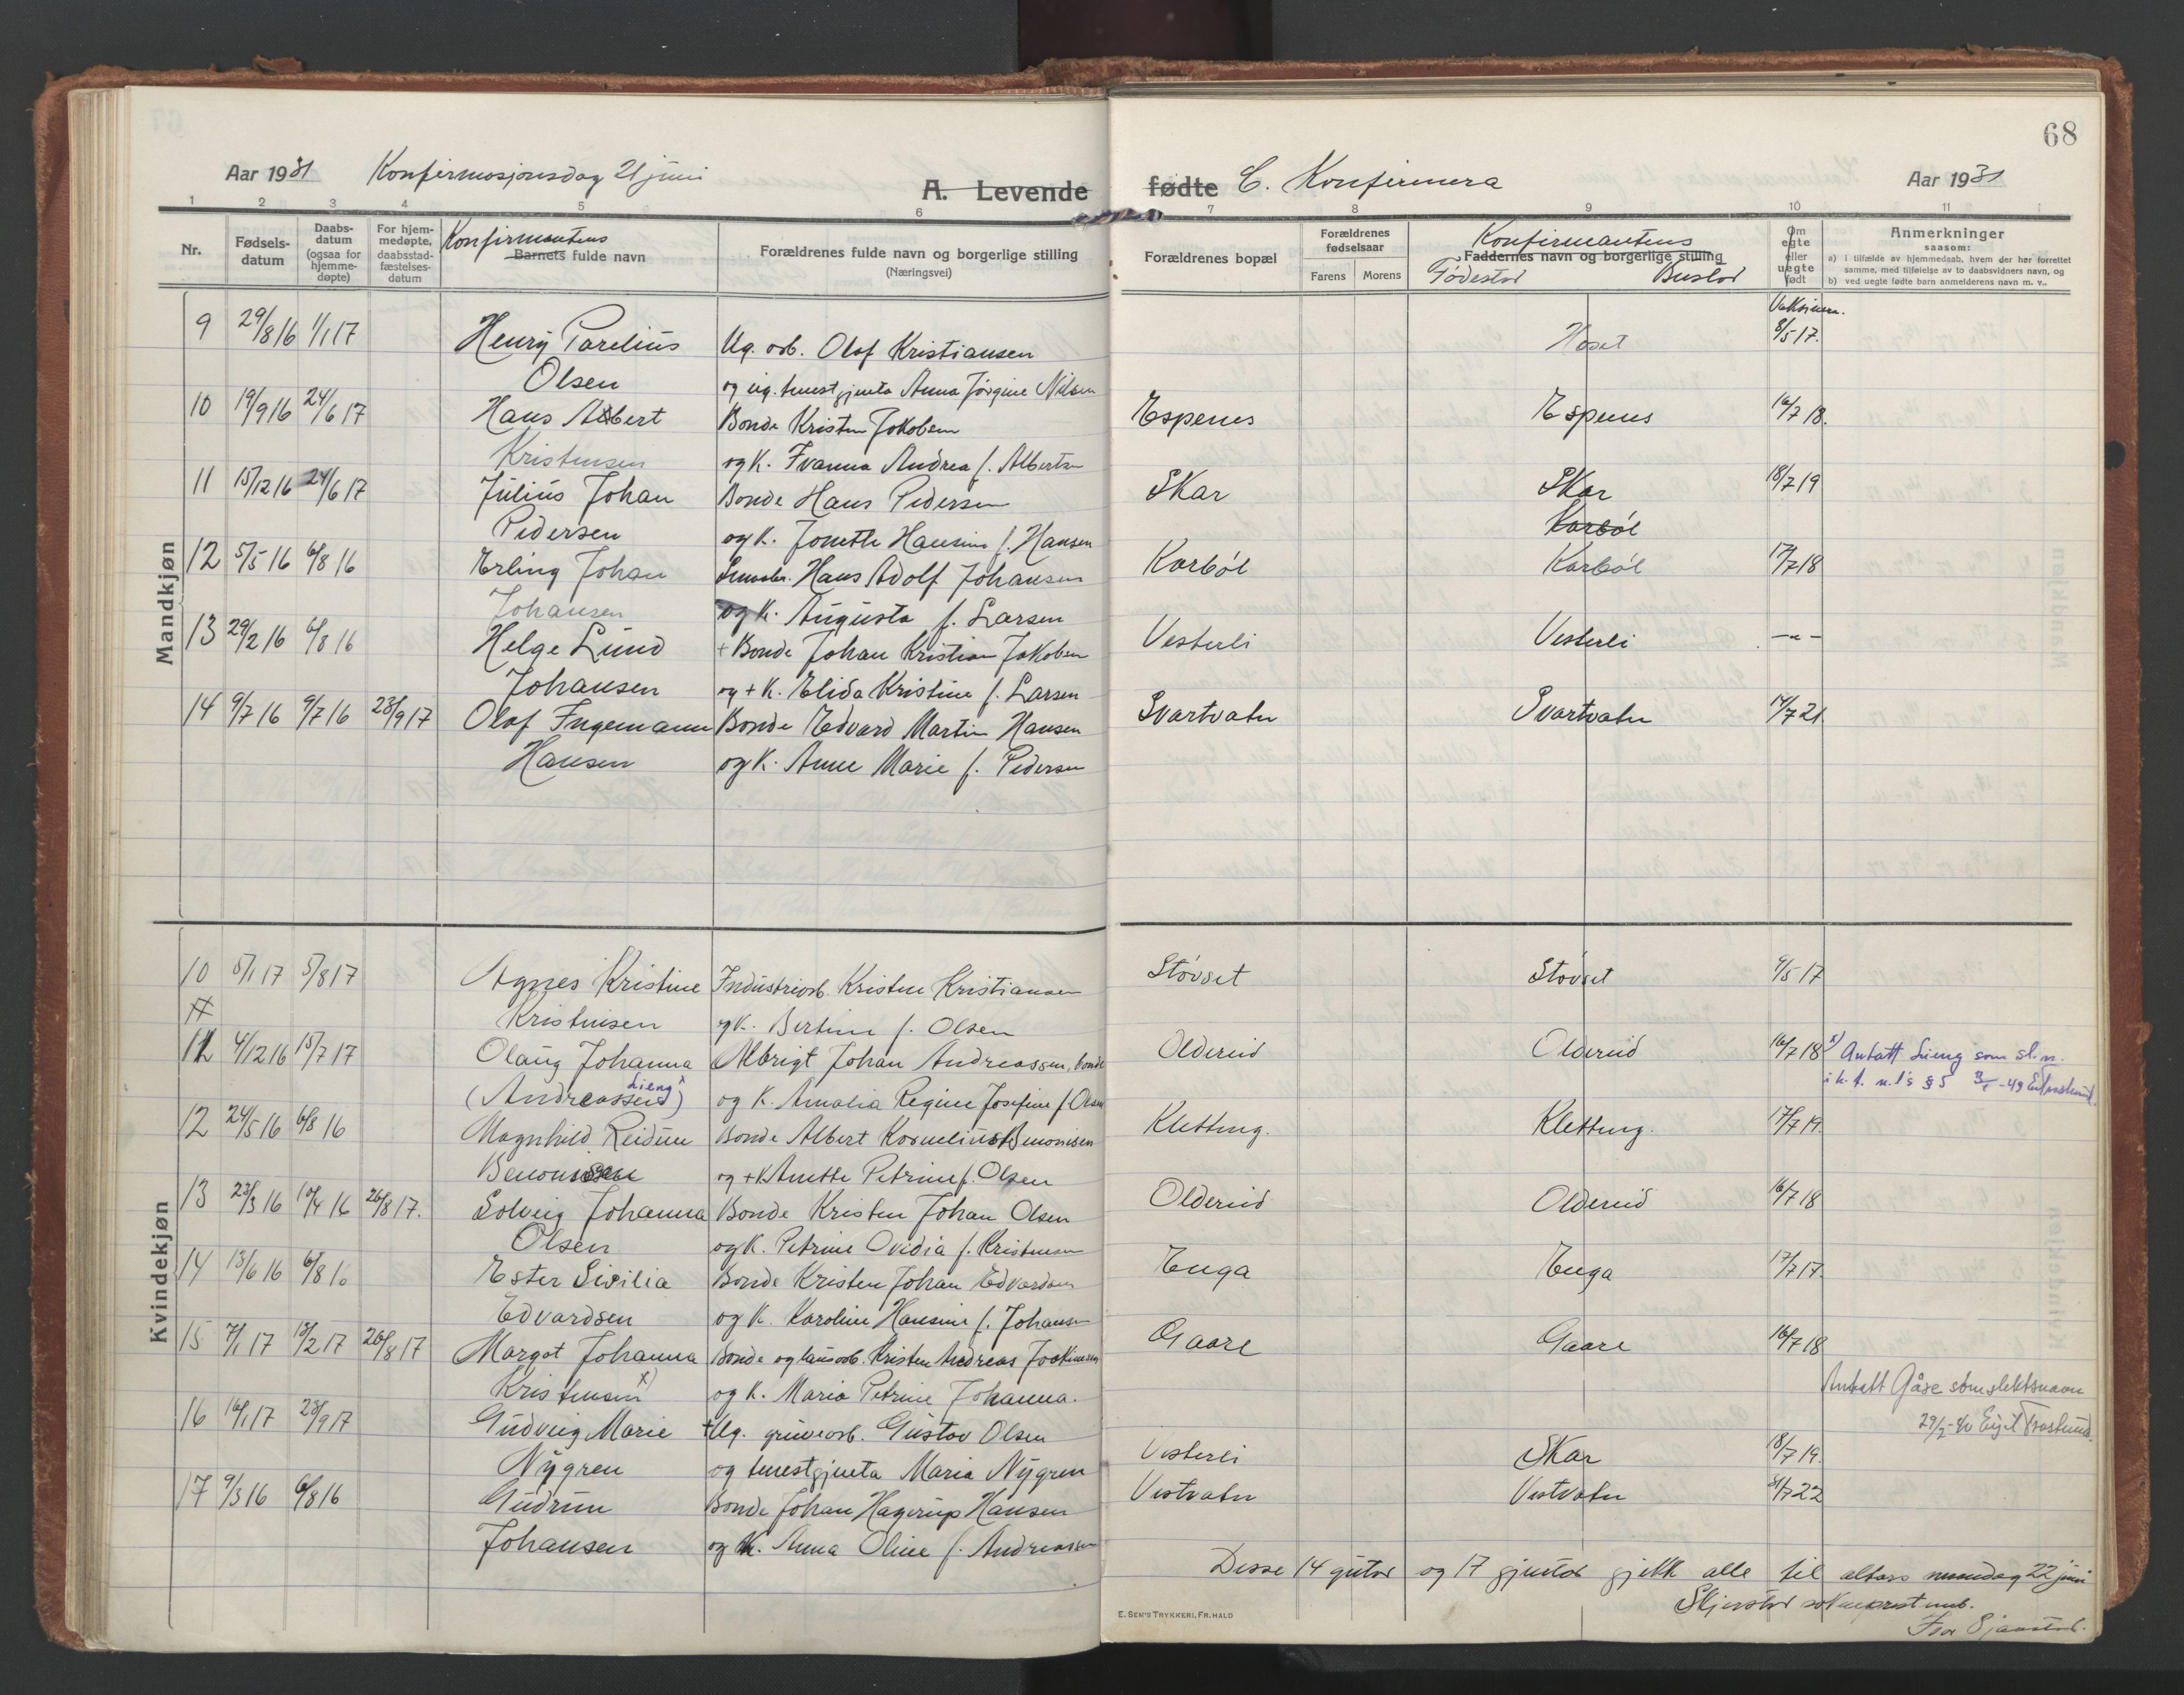 68
Aar 1931 Konfirmasjonsdag 21 juni
A. Levende fødte C. Konfirmera
Aar 1931
1 2 3 4 5 6 7 8 9 10 11
Nr.
Fødsels-datum
Daabs-datum (ogsaa for hjemme-døpte)
For hjem-medøpte, daabsstad-fæstelses-datum
Konfirmantens
Barnets fulde navn
Forældrenes fulde navn og borgerlige stilling
(Næringsvei)
Forældrenes bopæl
Forældrenes fødselsaar
Farens Morens
Konfirmantens
Faddernes navn og borgerlige stilling
Fødestad Bustad
Om egte eller uegte født
Anmerkninger
saasom:
a) i tilfælde av hjemmedaab, hvem der har forrettet samme, med tilføielse av to daabsvidners navn, og
b) ved uegte fødte barn anmelderens navn m. v..
Mandkjøn
Vaksinera.
9 29/8 16 1/1 17 Henry Parelius Ug. arb. Olaf Kristiansen Hoset 8/5 17.
Olsen og ug. tenestgjenta Anna Jørgine Nilsen
10 19/9 16 24/6 17 Hans Albert Bonde Kristen Jakobsen Espenes Espenes 16/7 18.
Kristensen og k. Ivanna Andrea f. Albertsen
11 15/12 16 24/6 17 Julius Johan Bonde Hans Pedersen Skar Skar 18/7 19
Pedersen og k. Jonette Hansine f. Hansen Karbøl
12 5/5 16 6/8 16 Erling Johan Hans Adolf Johansen Karbøl Karbøl 17/7 18
Johansen og k. Augusta f. Larsen
13 29/2 16 6/8 16 Helge Lund + Bonde Johan Kristian Jakobsen Vesterli Vesterli -"-
Johansen og + k. Elida Kristine f. Larsen
14 9/7 16 9/7 16 23/9 17 Olaf Ingemann Bonde Edvard Martin Hansen Svartvatn Svartvatn 14/7 21
Hansen og k. Anne Marie f. Pedersen
Kvindekjøn
10 5/1 17 5/8 17 Agnes Kristine Industriarb. Kristen Kristiansen Støvset Støvset 9/5 17
Kristensen og k. Bertine f. Olsen
11 4/12 16 15/7 17 Olaug Johanna Albrigt Johan Andreassen, bonde Oldereid Oldereid 16/7 18 x) Antatt Lieng som sl.n.
Lieng x
(Andreassen) og k. Amalia Regine Josefine f. Olsen i h. t. n.l's § 5
12 24/5 16 6/8 16 Magnhild Reidun Bonde Albert Kornelius Benonisen Kletteng. Kletteng. 17/7 19.
Benonisen og + k Anette Petrine f. Olsen
13 23/3 16 19/4 16 26/8 17. Solveig Johanna Bonde Kristen Johan Olsen Oldereid Oldereid 16/7 18
Olsen og k. Petrine Ovidia f. Kristensen
14 13/6 16 6/8 16 Ester Sisilia Bonde Kristen Johan Edvardsen Enga Enga 17/7 17.
Edvardsen og k. Karoline Hansine f. Johansen
15 7/1 17 13/2 17 26/8 17 Margot Johanna Bonde og lausarb. Kristen Andreas Joakimsen Gaare Gaare 16/7 18
Kristensen x) og k. Maria Petrine Johanna. Antatt Gåre som slektsnavn
16 16/1 17 23/9 17 Gudveig Marie + Ug. gruvearb. Gustav Olsen 29/2-40
Nygren og tenestgjenta Maria Nygren Vesterli Skar 18/7 19.
17 9/3 16 6/8 16 Gudrun Bonde Johan Hagerup Hansen Vestvatn Vestvatn 31/7 22
Johansen og k. Anna Oline f. Andreassen
Disse 14 gutar og 17 gjentor gjekk alle til altars mandag 22 juni
Skjerstad sokneprestemb.
E. SEM'S TRYKKERI, FR. HALD